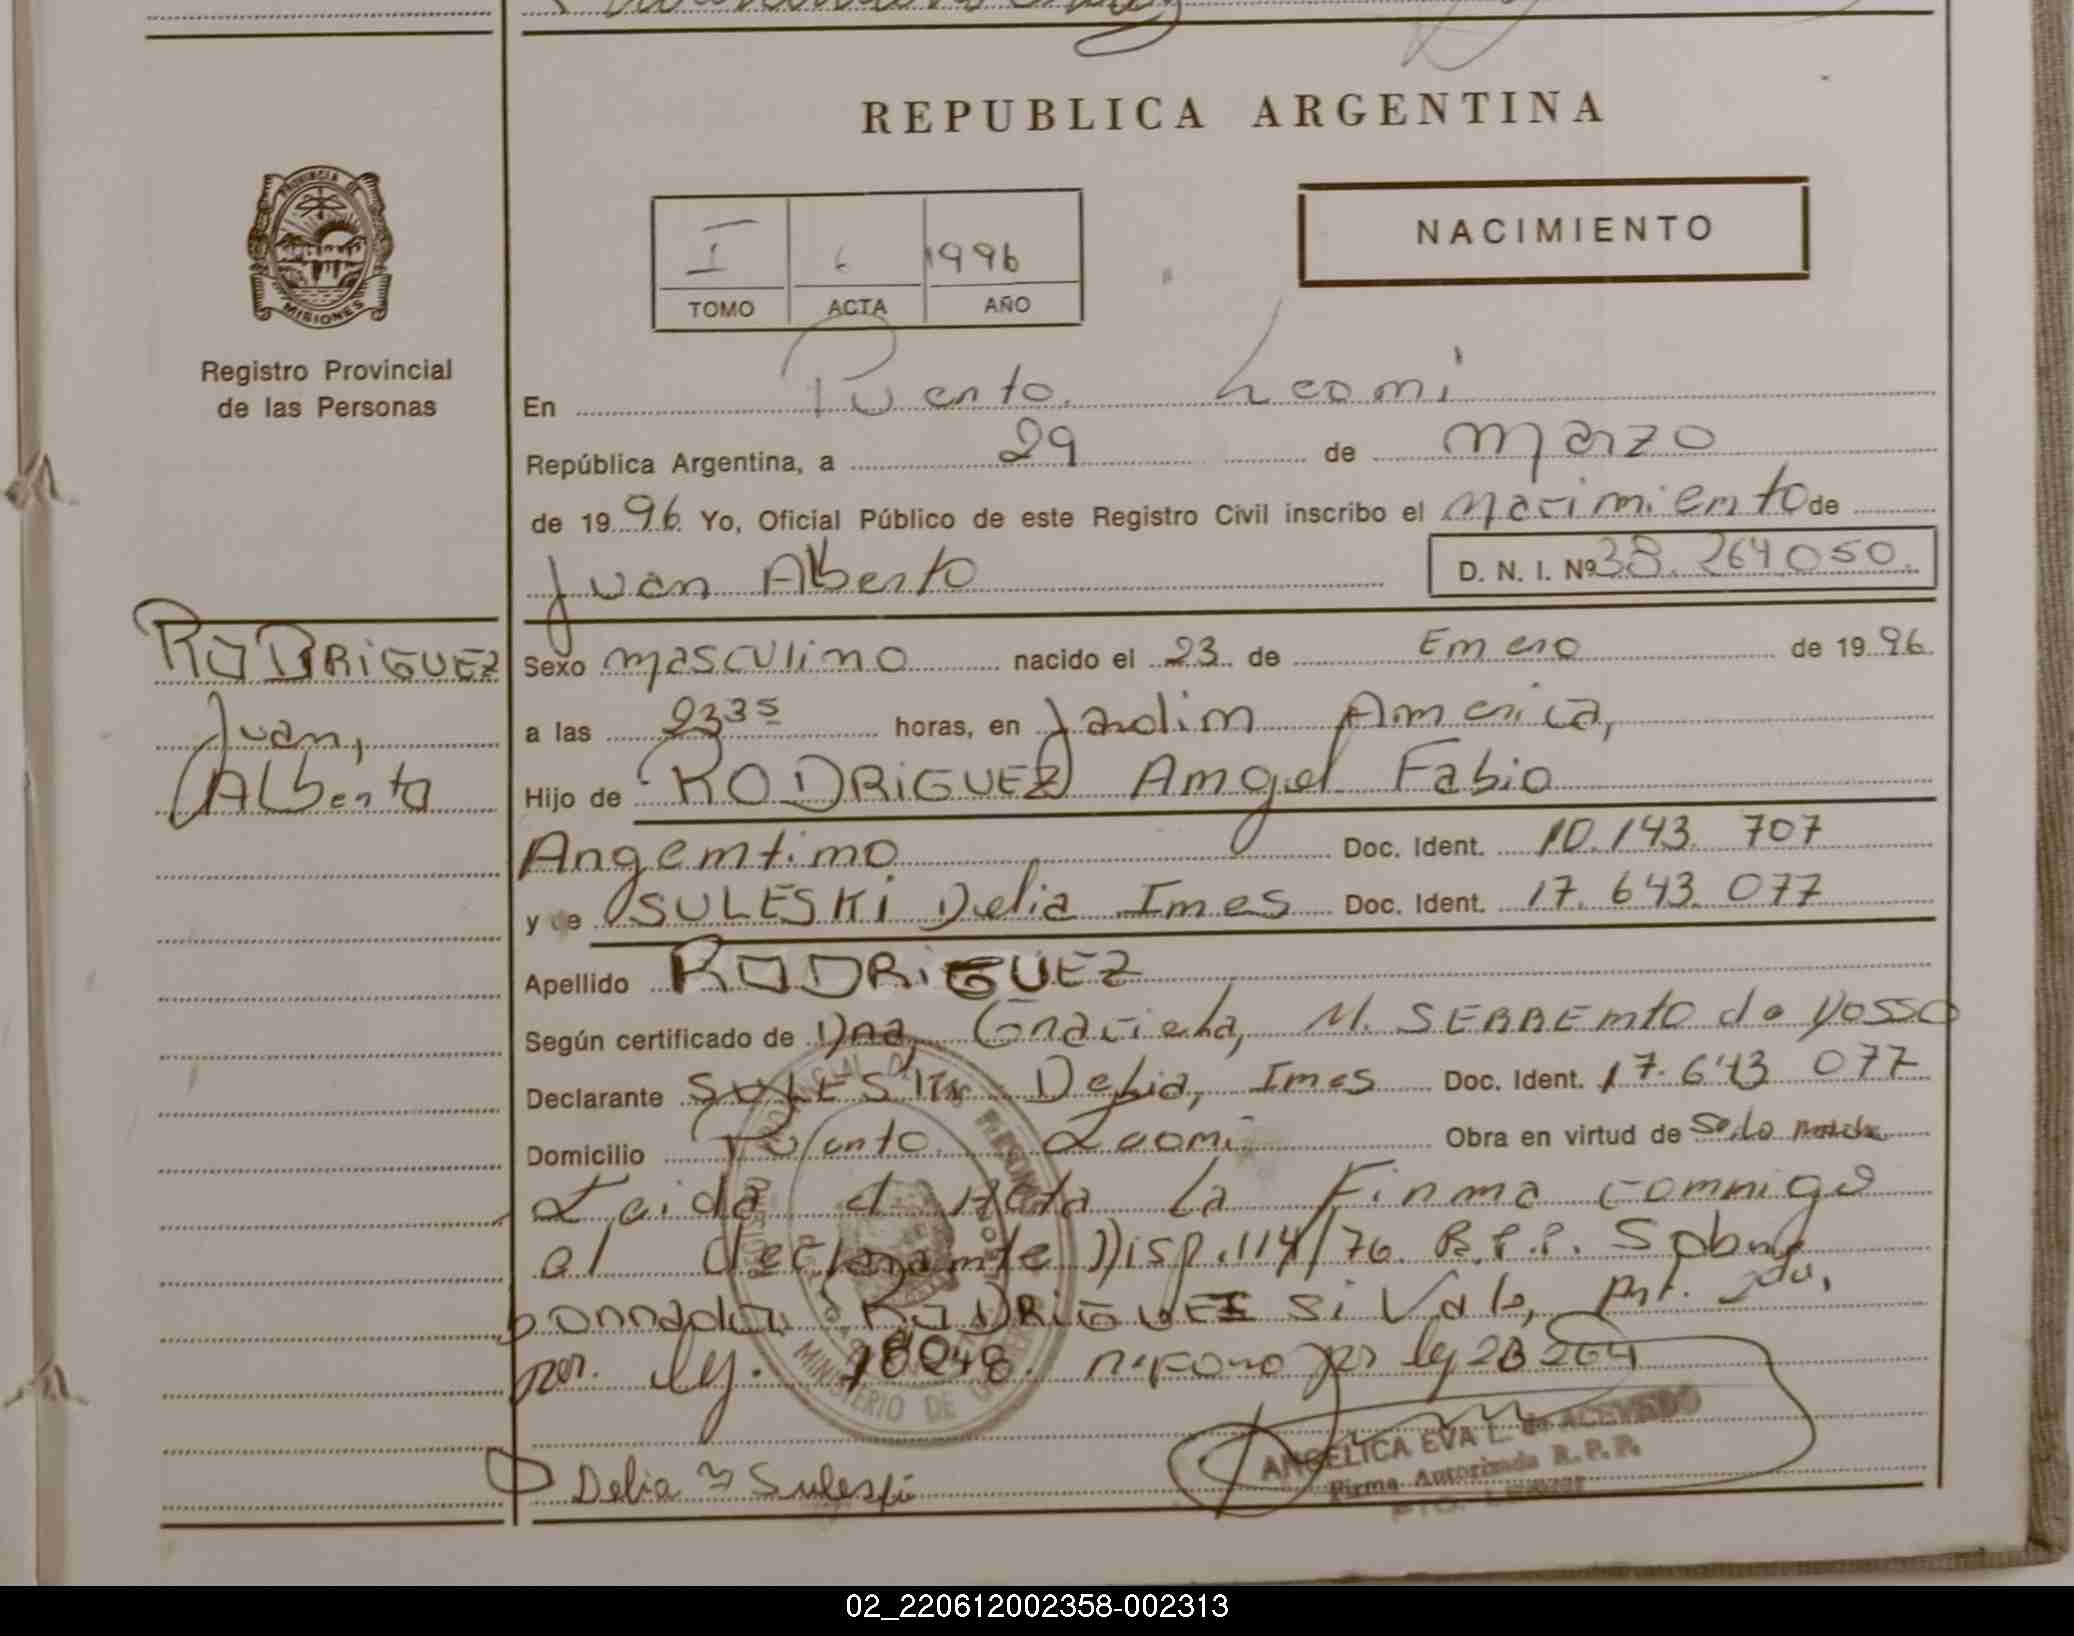 REPUBLICA ARGENTINA
NACIMIENTO
I 6 1996
TOMO ACTA AÑO
PROVINCIA DE
MISIONES
Registro Provincial
de las Personas
En Puerto Leoni
República Argentina, a 29 de Marzo
de 1996 Yo, Oficial Público de este Registro Civil inscribo el Nacimiento de
Juan Alberto D. N. I. Nº 38.264.050.
RODRIGUEZ
Juan,
Alberto
Sexo masculino nacido el 23 de Enero de 1996
a las 2335 horas, en Jardin America,
Hijo de RODRIGUEZ Angel Fabio
Argentino Doc. Ident. 10.143.707
y de SULESKI Delia Ines Doc. Ident. 17.643.077
Apellido RODRIGUEZ
Según certificado de Dra, Graciela, M. de Dosso
Declarante SULESKI Delia, Ines Doc. Ident. 17.643 077
Domicilio Puerto Leoni Obra en virtud de ser la madre
Leida el Acta La Firma conmigo
el declarante Disp.114/76 R.P.P. Sobre
borrado: RODRIGUEZ si Vale,
por ley. 18248. por ley 23 264
Delia I Suleski
ANGELICA EVA L. de ACEVEDO
Firma Autorizada R. P. P.
MINISTERIO DE
02_220612002358-002313